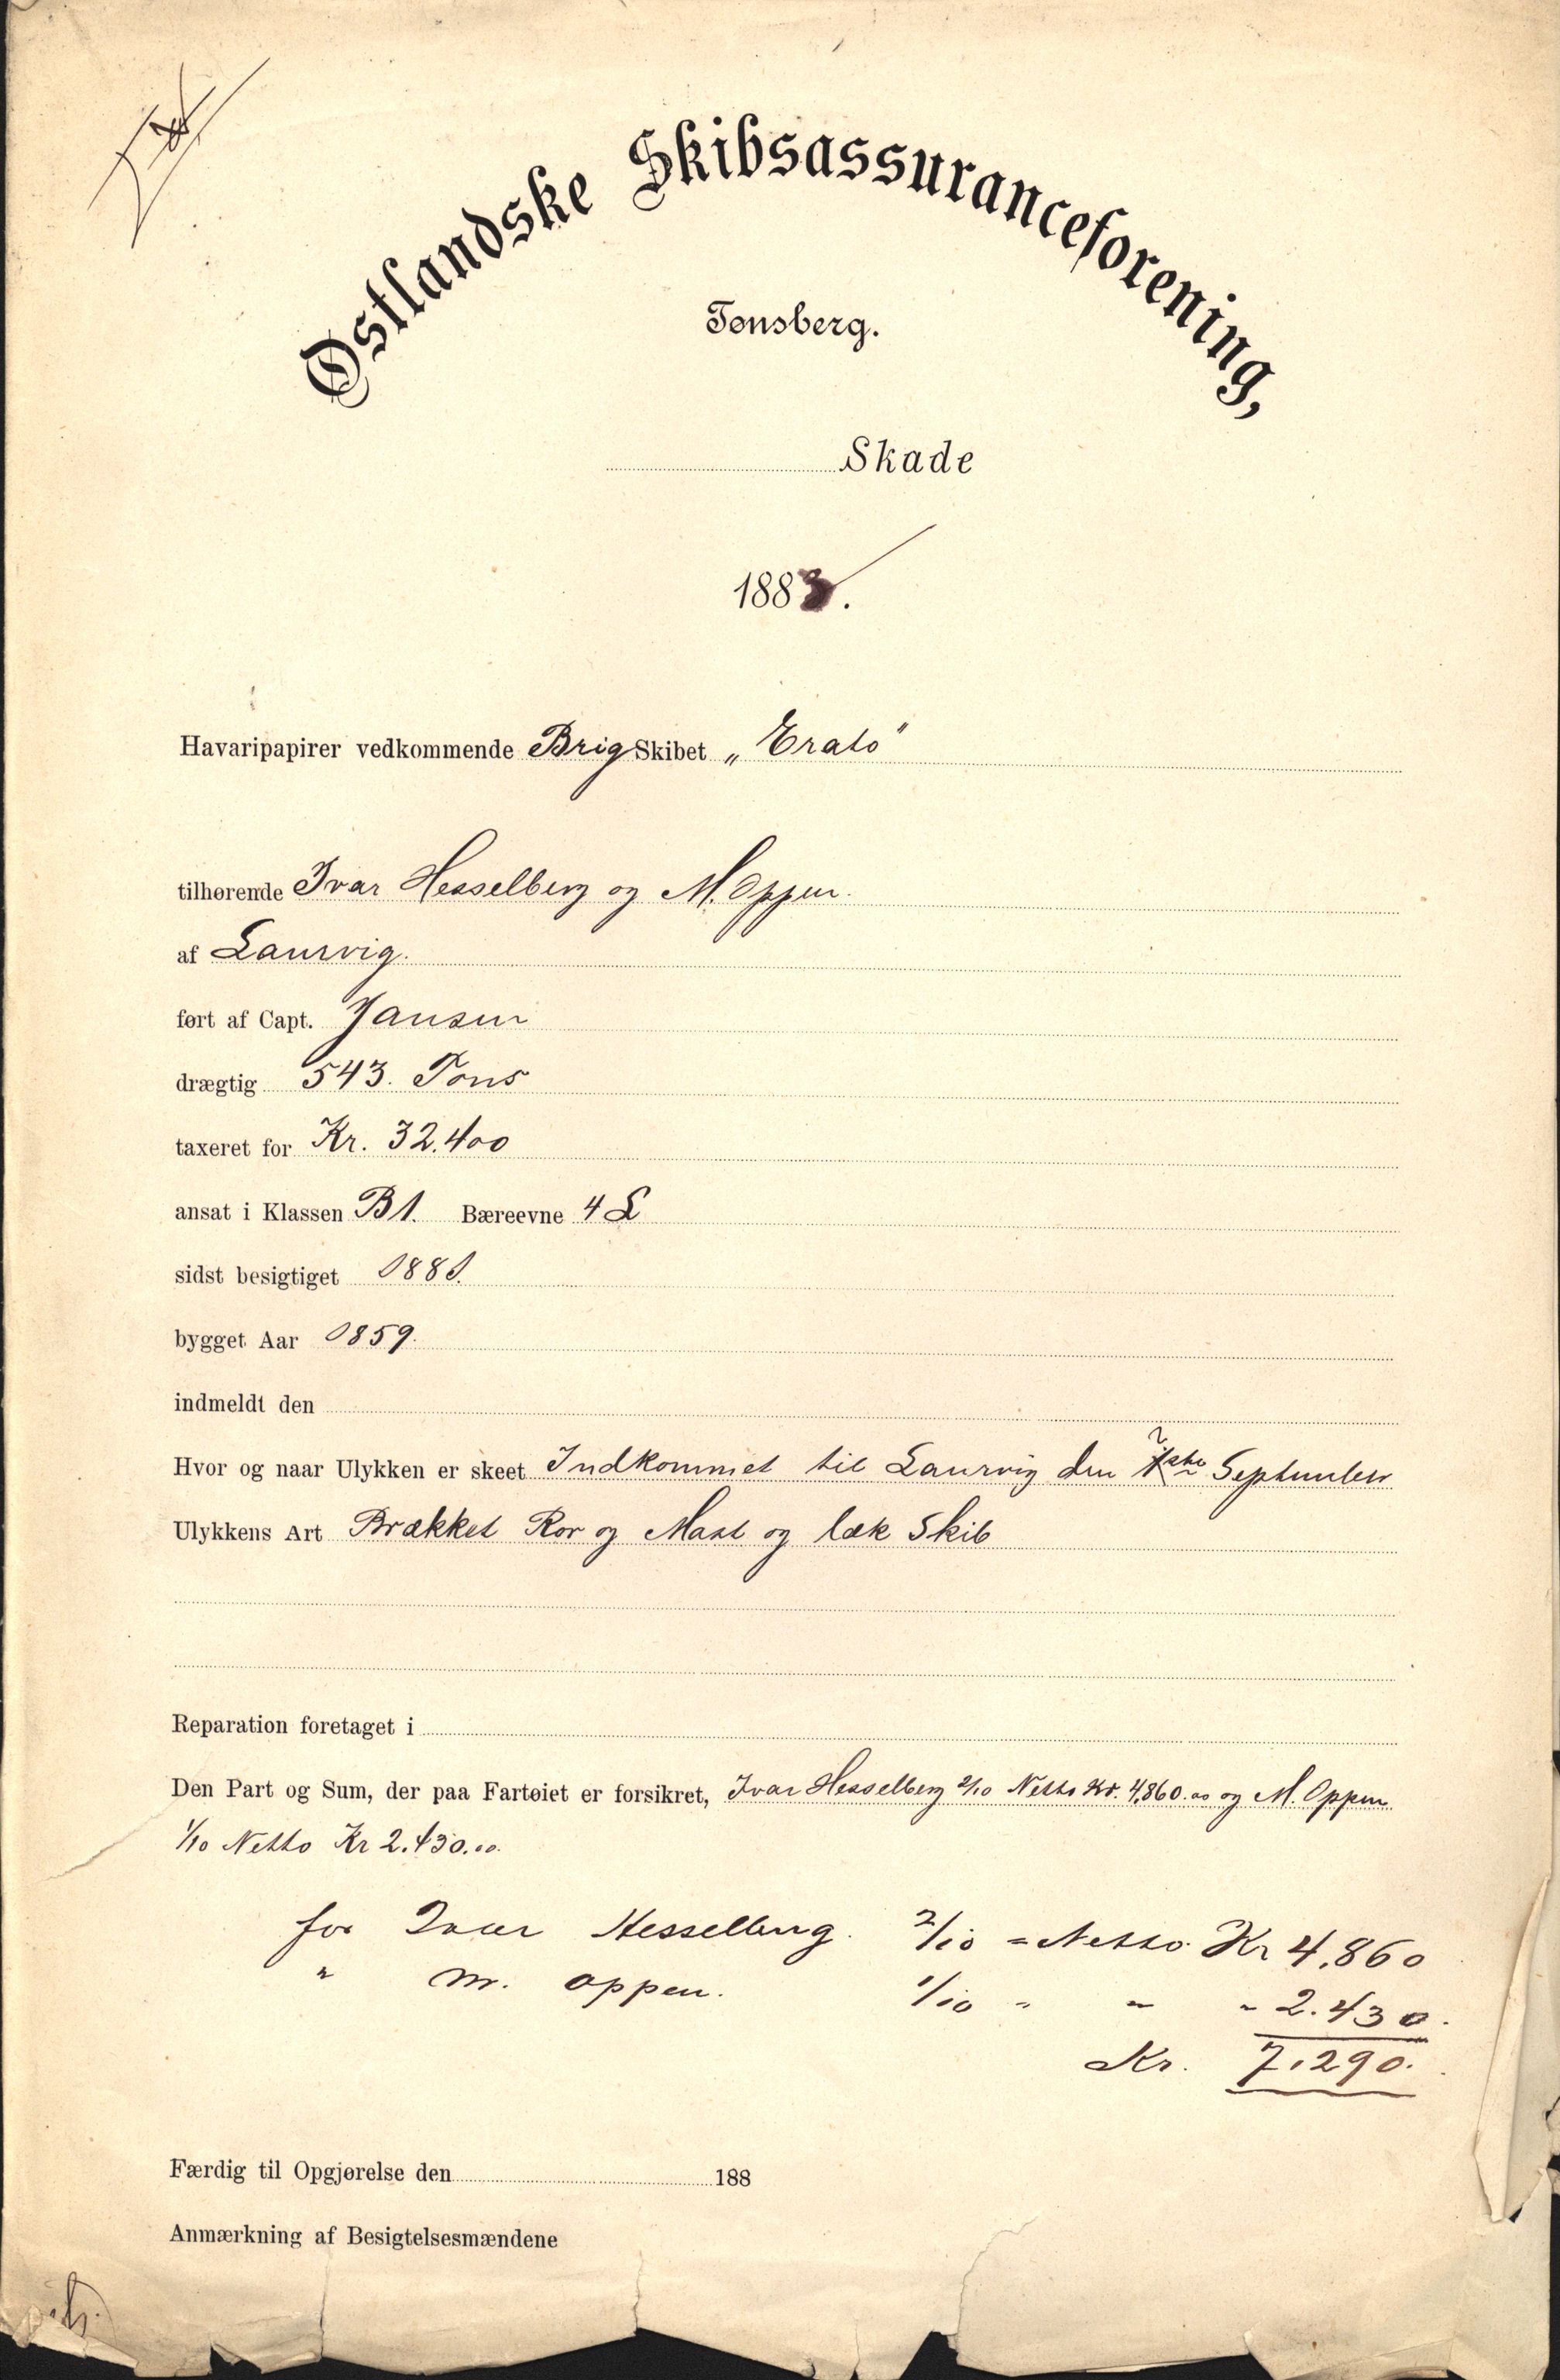 Østlandske Skibsassuranceforening,
Tønsberg.
Skade
1883.
Havaripapirer vedkommende Brig Skibet „Erato"
tilhørende Ivar Hesselberg og M. Oppen.
af Laurvig.
ført af Capt. Jansen
drægtig 543. Tons
taxeret for Kr. 32.400
ansat i Klassen B1. Bæreevne 4 L
sidst besigtiget 1881.
bygget Aar 1859.
indmeldt den
Hvor og naar Ulykken er skeet Indkommet til Laurvig den September
Ulykkens Art Brækket Ror og Mast og læk Skib
Reparation foretaget i
Den Part og Sum, der paa Fartøiet er forsikret, Ivar Hesselberg 2/10 Netto Kr. 4,860.00 og M. Oppen
1/10 Netto Kr 2.430.00.
for Ivar Hesselberg. 2/10 = Netto Kr 4,860
" M. Oppen. 1/10 " " " 2.430.
Kr. 7.290.
Færdig til Opgjørelse den 188
Anmærkning af Besigtelsesmændene